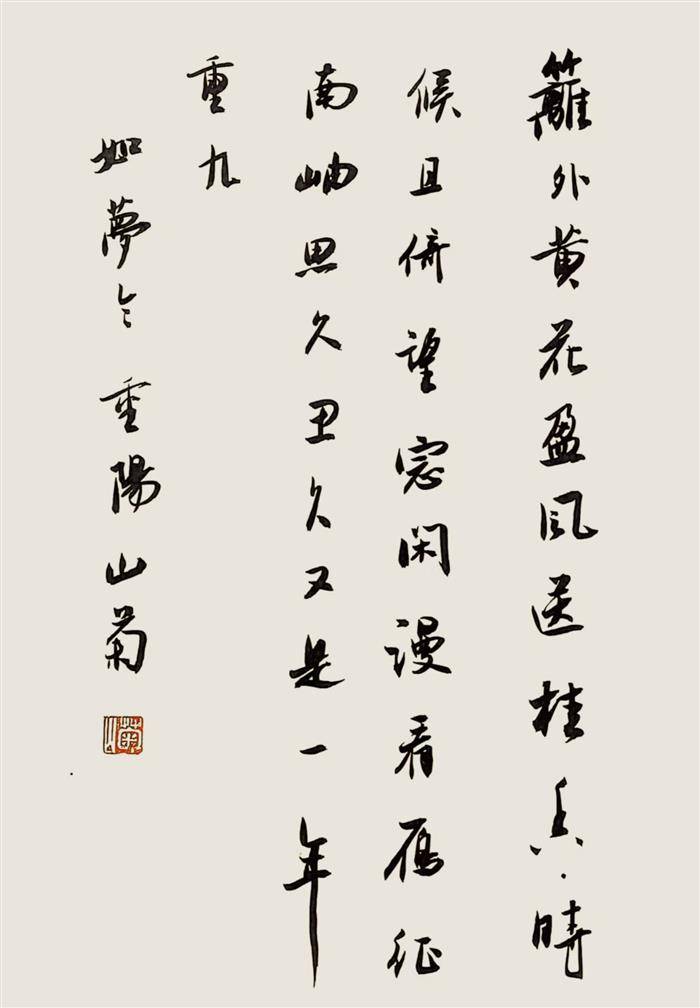 籬外黄花盈風送桂香晴
候且併望窓閑漫看雁征
南岫思久丑久又是一年
重九
如夢令 重陽山菊